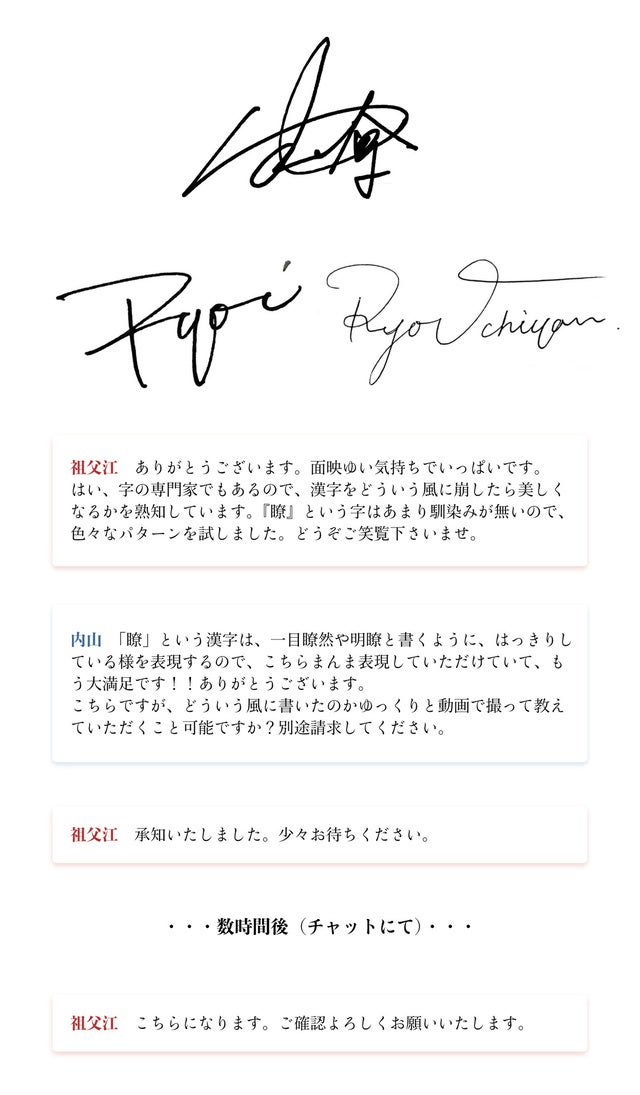 Ryo Uchiyam.
祖父江　ありがとうございます。面映ゆい気持ちでいっぱいです。
はい、字の専門家でもあるので、漢字をどういう風に崩したら美しく
なるかを熟知しています。『瞭』という字はあまり馴染みが無いので、
色々なパターンを試しました。どうぞご笑覧下さいませ。
内山　「瞭」という漢字は、一目瞭然や明瞭と書くように、はっきりし
ている様を表現するので、こちらまんま表現していただけていて、も
う大満足です！！ありがとうございます。
こちらですが、どういう風に書いたのかゆっくりと動画で撮って教え
ていただくこと可能ですか？別途請求してください。
祖父江　承知いたしました。少々お待ちください。
・・・数時間後（チャットにて）・・・
祖父江　こちらになります。ご確認よろしくお願いいたします。